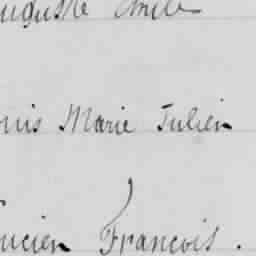 uguste Emile
ouis Marie Julien
ucien François.